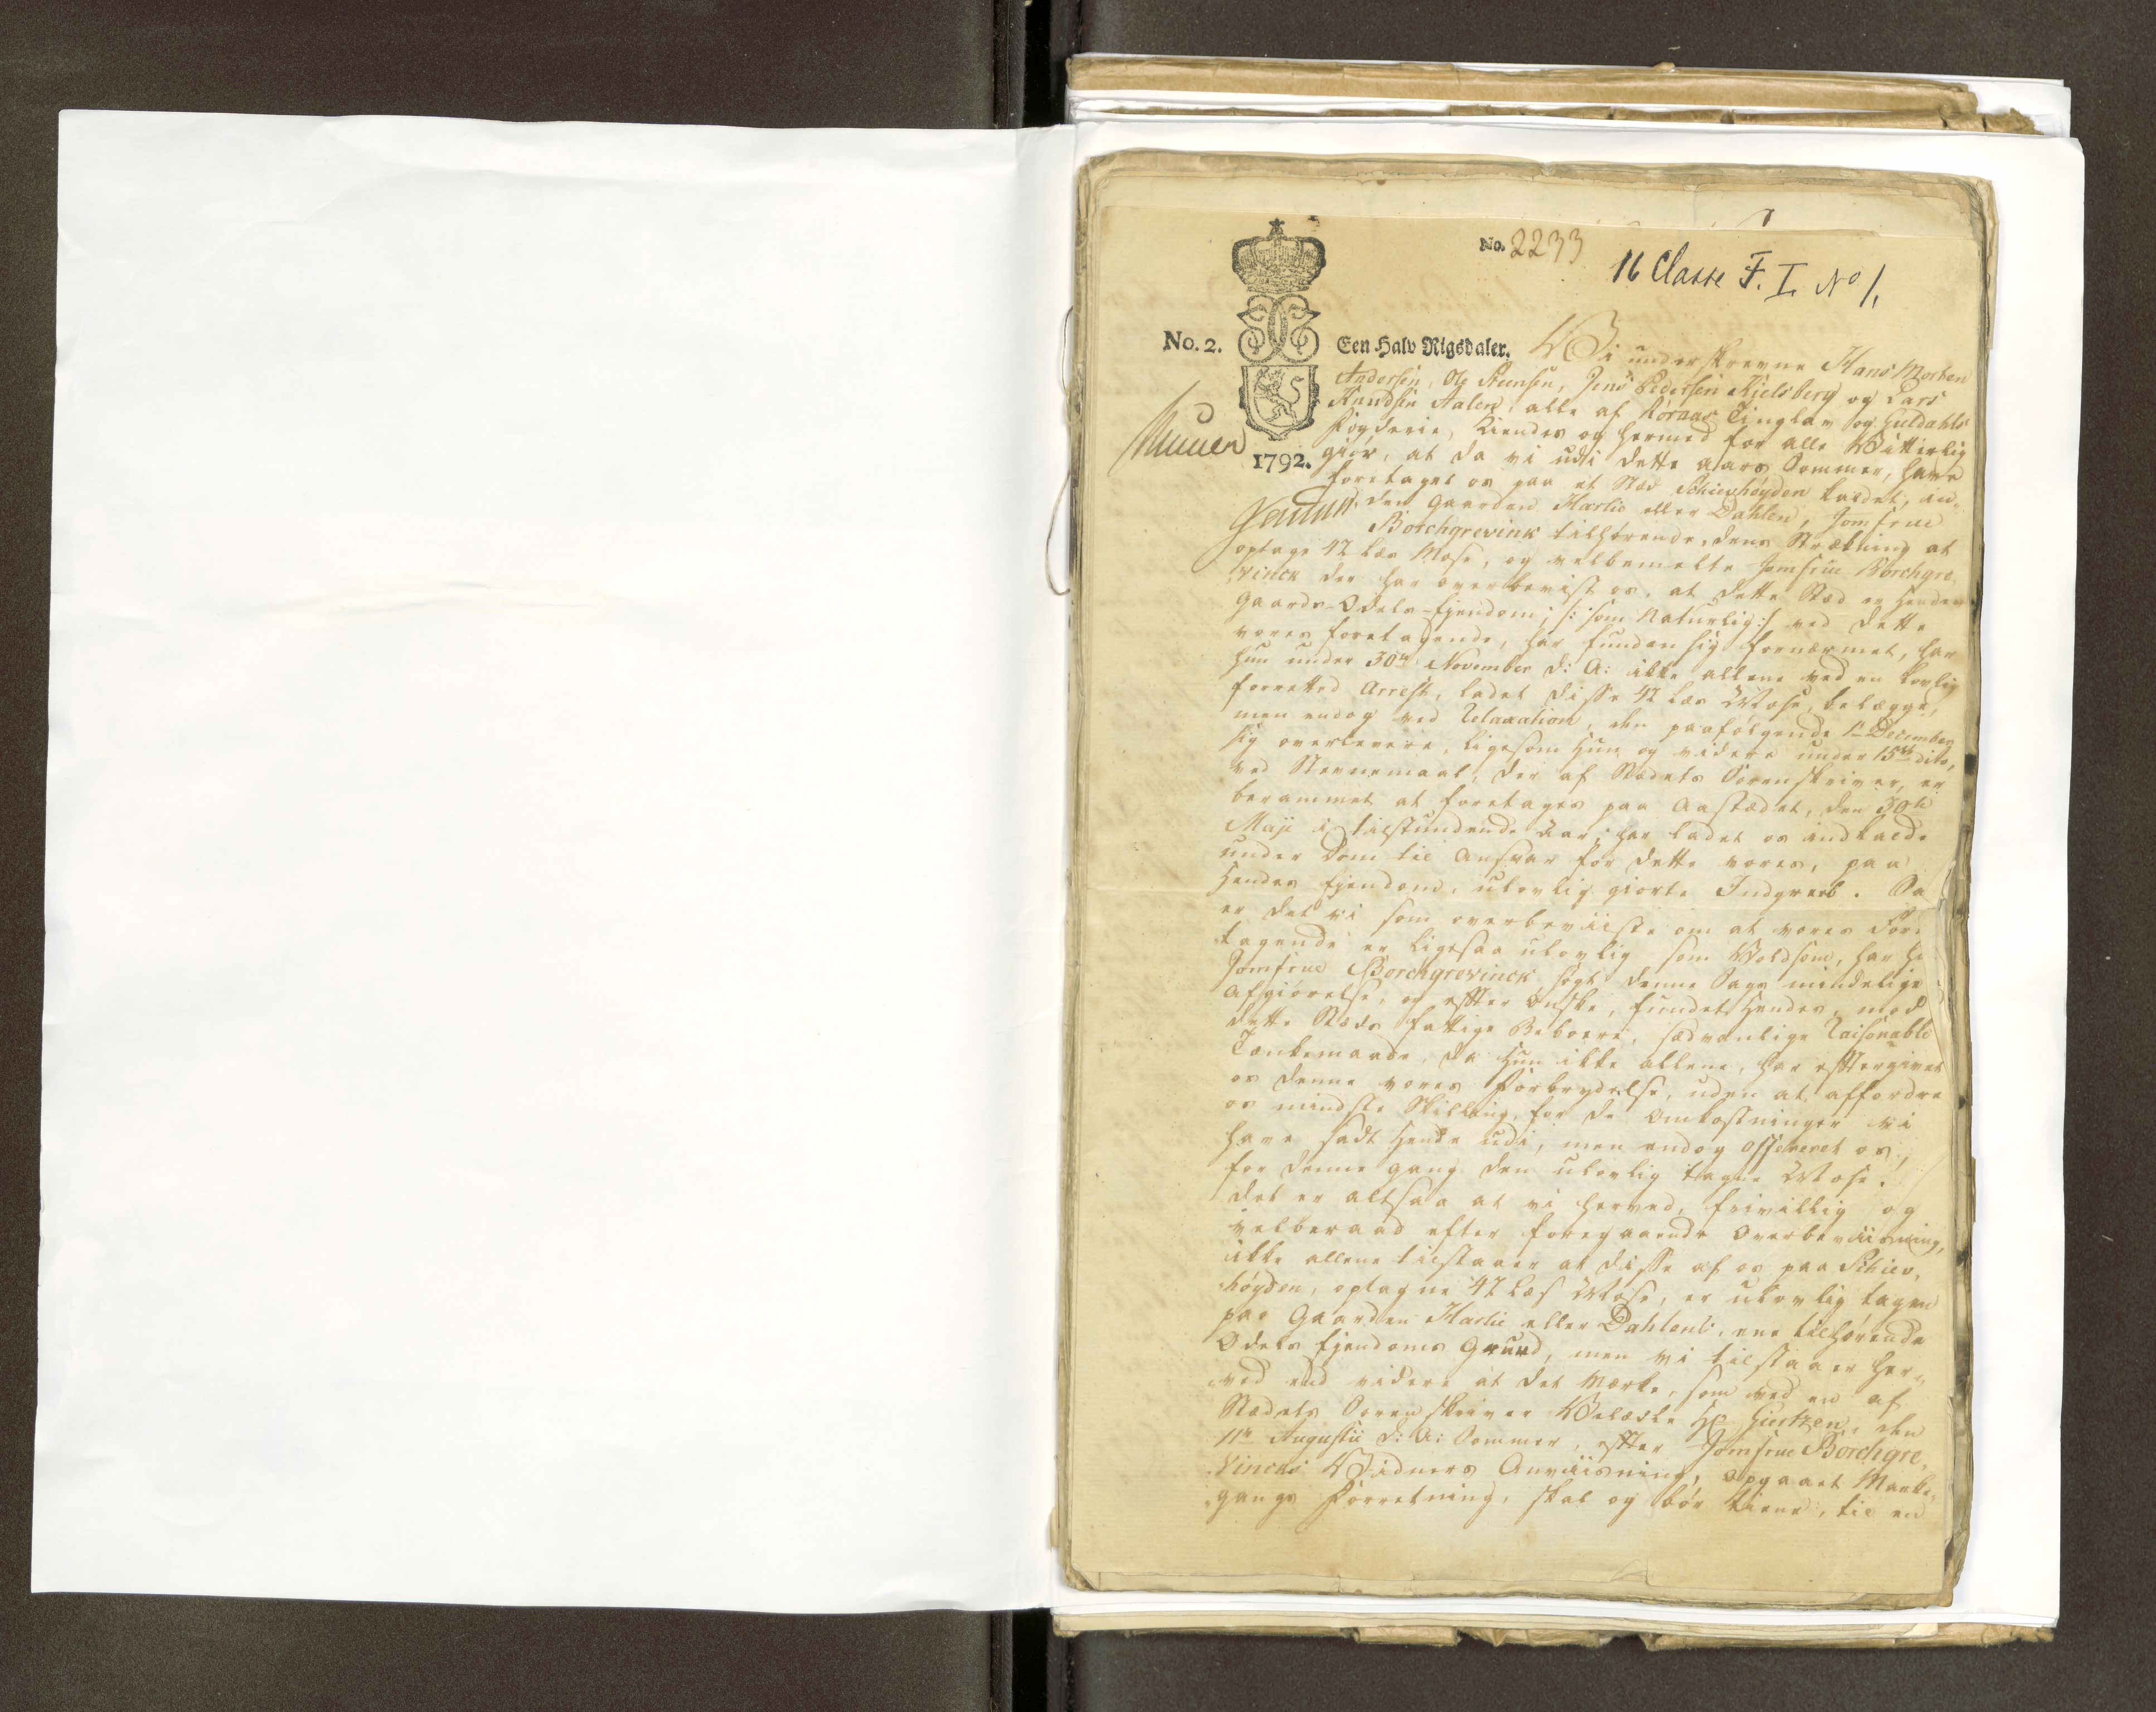 No. 2233
16 Classe F. I. No 1.
No. 2. Een Halv Rigsdaler. Wi underskrevne Hans Morten
Andersen, Ole Steensen, Jens Pedersen Kjelsberg og Lars
Knudsen Aalen, alle af Röraas Tinglav og Guldahls
Fogderie, Kiendes og hermed for alle Witterlig
1792. giör, at da vi udi dette Aars Sommer, have
foretaget os paa et Stæd Schievhöyden kaldet, un-
den Gaarden Harlie eller Dahlen, Jomfrue
Borchgrevink tilhørende, dens Strækning at
optage 42 Læs Mose, og velbemelte Jomfrue Borchgre
vinck der har overbevist os, at dette Stæd er Hendes
Gaards-Odels-Ejendom; /: som Naturlig :/ ved dette
vores foretagende, har funden sig fornærmet, har
hun under 30te November d: A: ikke allene ved en lovlig
forretted Arrest, ladet disse 42 Læs Mose, belægge,
men endog ved Relaxation, den paafölgende 1te December
sig overlevere, ligesom Hun og videre under 15de dito,
ved Stevnemaal, der af Stædets Sorenskriver, er
berammet at foretages paa Aastædet, den 30te
Maji i tilstundende Aar, har ladet os indkalde
under Dom til Ansvar for dette vores, paa
Hendes Ejendom, ulovlig giorte Indgreb. Saa
er det vi som overbeviiste om at vores Fore
tagende er ligesaa ulovlig som Voldsom, har hos
Jomfrue Borchgrevinck sögt denne Sags mindelige
Afgiörelse, og efter Önske, fundet Hendes, mod
dette Stæds fattige Beboere, sædvanlige Raisonable
Tænkemaade, da Hun ikke allene, har eftergivet
os denne vores Forbrydelse, uden at affordre
os mindste Skilling, for de Omkostninger vi
have sadt Hende udi, men endog Offereret os,
for denne gang den ulovlig tagne Mose.
Det er altsaa at vi herved, frivillig og
velberaad efter foregaaende Overbeviisning,
ikke allene tilstaaer at disse af os paa Schiev-
höyden, optagne 42 Læs Mose, er ulovlig tagen
paa Gaarden Harlie eller Dahlens, tilhörende
Odels Ejendoms Grund, men vi tilstaaer her-
ved end videre at det Mærke, som ved en af
Stædets Sorenskriver Velædle Hr Giertzen, den
11te Augustii d: A: Sommer, efter Jomfrue Borchgre-
vincks Widners Anviisning, Opgaaet Marke-
gangs Forretning, skal og bör tiene, til en